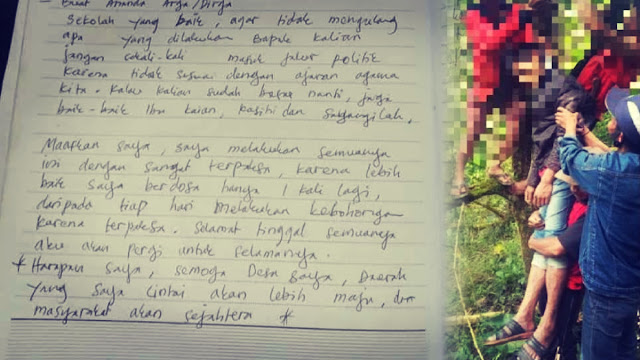 - Buat Ananda Arga/Dirga
Sekolah yang baik, agar tidak mengulang
apa yang dilakukan Bapak kalian
jangan sekali-kali masuk jalur politik
karena tidak sesuai dengan ajaran agama
kita. Kalau kalian sudah besar nanti, jaga
baik-baik Ibu kalian, kasihi dan sayangilah.
Maafkan saya, saya melakukan semuanya
ini dengan sangat terpaksa, karena lebih
baik saya berdosa hanya 1 kali lagi,
daripada tiap hari melakukan kebohongan
karena terpaksa. Selamat tinggal semuanya
aku akan pergi untuk selamanya.
* Harapan saya, semoga Desa saya, Daerah
yang saya cintai akan lebih maju, dan
masyarakat akan sejahtera *